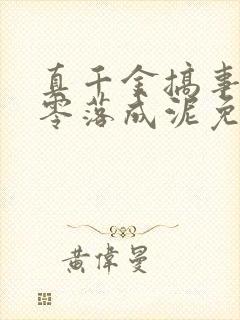 真千金搞事
零落成泥免
黄偉曼